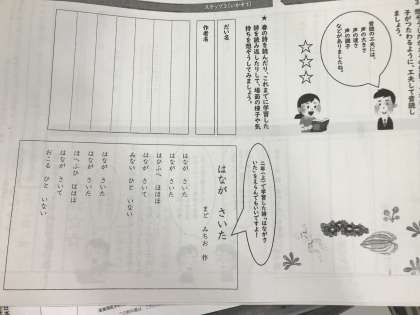 ステップ3(いかそう)
子がつたわるように、工夫して音読し
ましょう。
音読の工夫には、
声の大きさ
声の速さ
声の調子
などがありましたね。
☆☆☆
★春の詩を読んだり、これまでに学習した
詩を読み返したりして、場面の様子や気
持ちを想ぞうしてみましょう。
だい名
作者名
二年(上)で学習した詩「はながさ
いた」をえらんでもいいですよ!
はなが さいた
まど みちお 作
はなが さいた
はなが さいた
はひふへ ほほほ
はなが さいて
みない ひと いない
はなが さいた
はなが さいた
はへふひ ははは
はなが さいて
おこる ひと いない